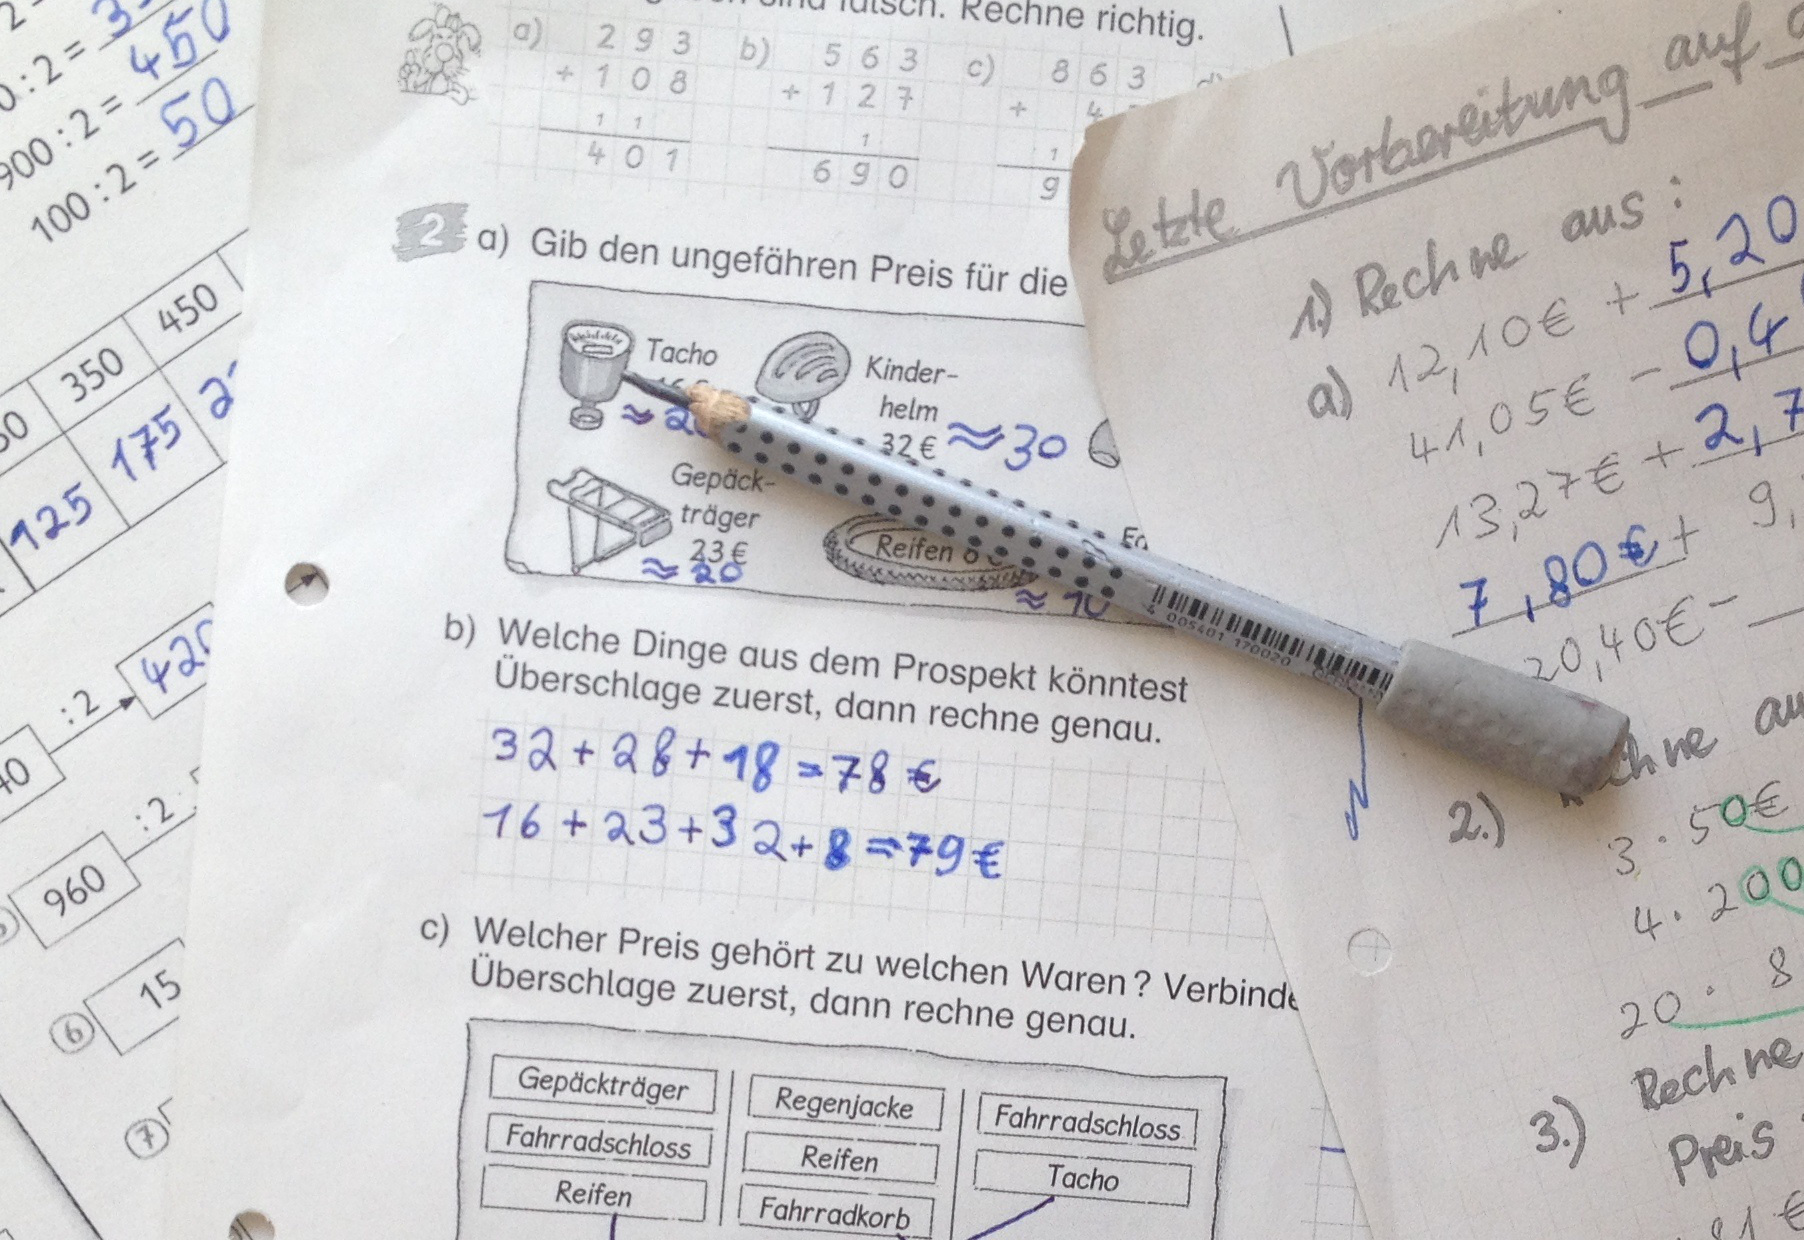 0 : 2 =
900 : 2 = 450
100 : 2 = 50
350 450
125 175
: 2 420
960 : 2
⑥ 15
⑦
sind falsch. Rechne richtig.
a) 293 b) 563 c) 863
+ 108 + 127 + 4
1 1 1 1
401 690 9
2 a) Gib den ungefähren Preis für die
Tacho
≈
Kinder-
helm
32 € ≈ 30
Gepäck-
träger
23 €
≈ 20
Reifen
≈ 10
4 005401 170020
b) Welche Dinge aus dem Prospekt könntest
Überschlage zuerst, dann rechne genau.
32 + 28 + 18 = 78 €
16 + 23 + 32 + 8 = 79 €
c) Welcher Preis gehört zu welchen Waren? Verbinde
Überschlage zuerst, dann rechne genau.
Gepäckträger Regenjacke Fahrradschloss
Fahrradschloss Reifen Tacho
Reifen Fahrradkorb
Letzte Vorbereitung auf
1.) Rechne aus:
a) 12,10€ + 5,20
41,05€ - 0,4
13,27€ + 2,7
7,80€ + 9,
20,40€ -
2.)
3 · 50€
4 · 200
20 · 8
3.) Rechne
Preis